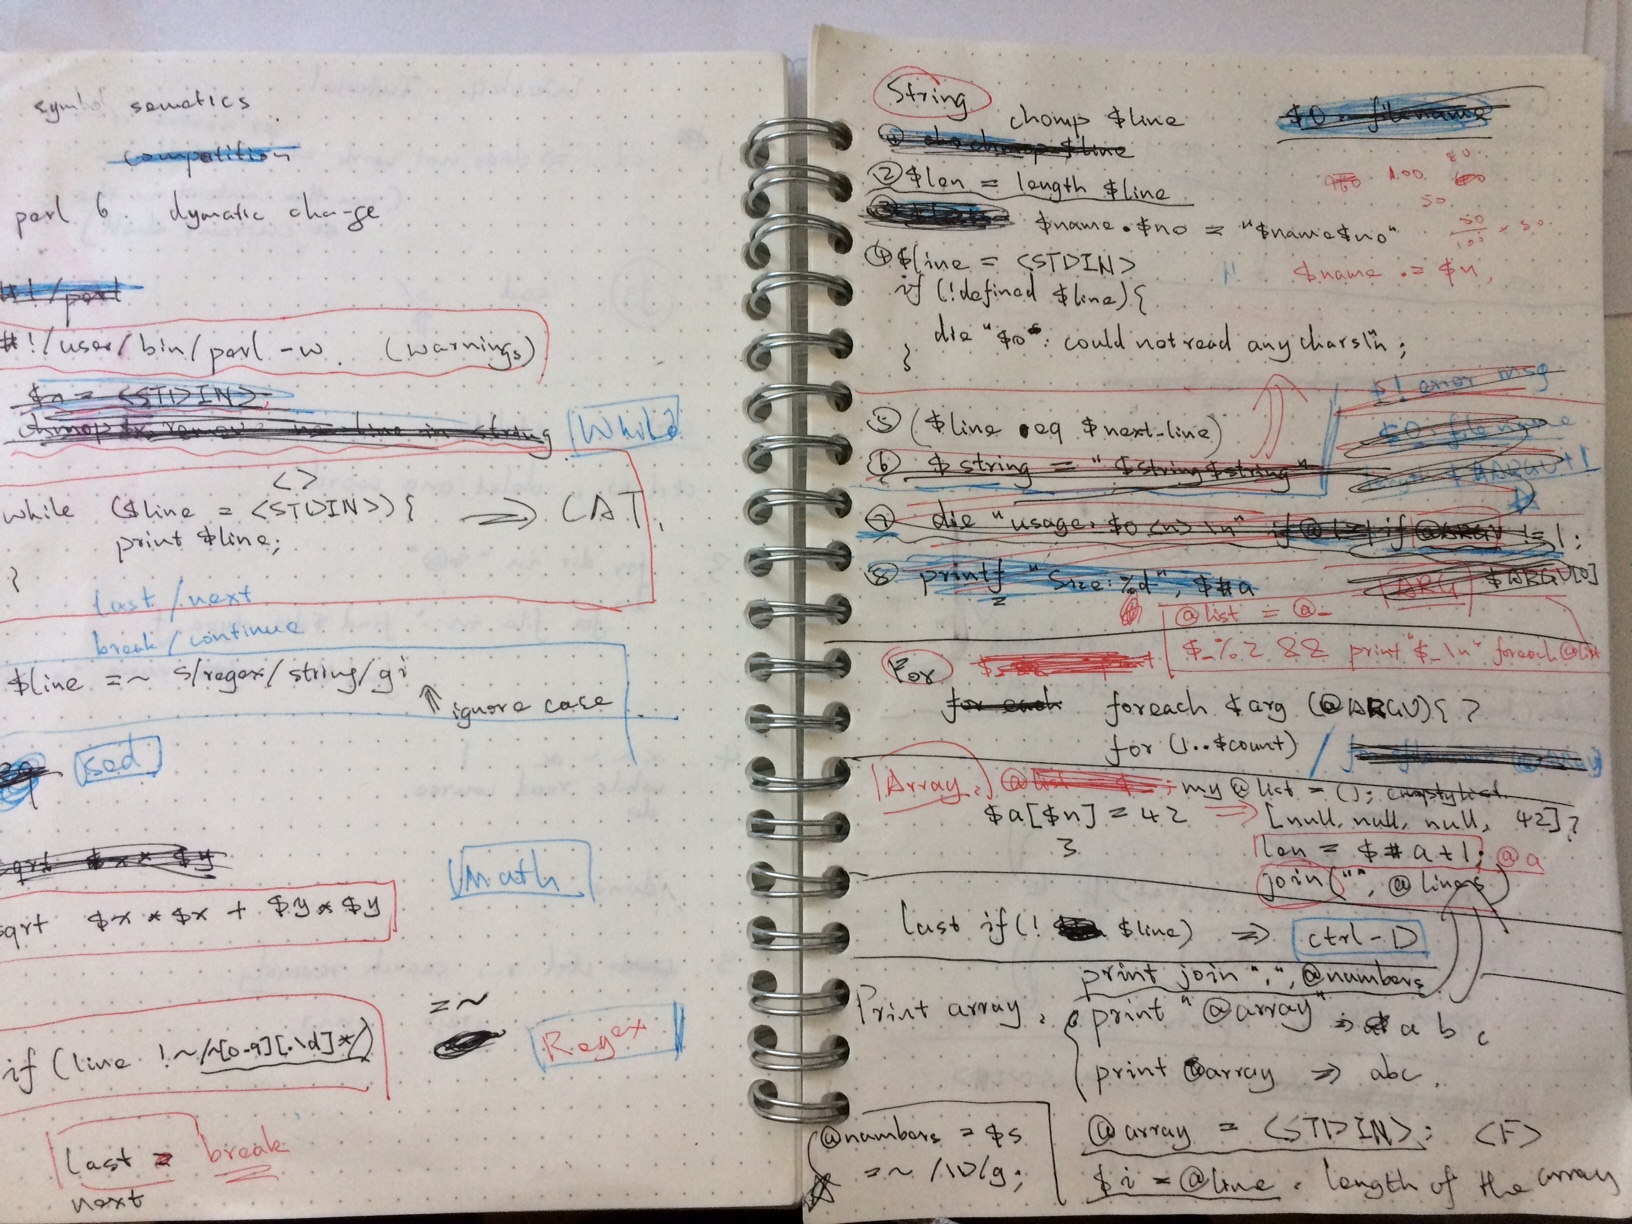 symbol sematics
competition
perl 6. dymatic change
#!/perl
#!/user/bin/perl -w. (warnings)
$n = <STDIN>;
line in string
While
<>
while ($line = <STDIN>){ => CAT,
print $line;
}
last/next
break/continue
$line =~ s/regex/string/gi
ignore case
sed
sqrt $x** $y
Math
sqrt $x*$x + $y*$y
=~
Regex
if (line !~/~[0-9][.\d]*/)
last = break
next
String
chomp $line
$0 filename
① chomp $line
② $len = length $line
100 80
50
③
$name.$no = "$name$no"
50/100 × 50.
④ $line = <STDIN>
$name .= $n,
if (!defined $line){
die "$0: could not read any chars\n";
}
$! error msg
⑤ ($line eq $next-line)
$0 filename
⑥ $string = "$string$string"
$#ARGV+1
⑦ die "usage: $0 <n> \n" if @ARGV != 1;
⑧ printf "Size:%d", $#a
ARG $ARGV[0]
@list = @_
$_%2 && print "$_\n" foreach @list
For
for each foreach $arg (@ARGV){ }
for (1..$count) /
Array. @list $ ; my @list = (); emptylist.
$a[$n] = 42 => [null, null, null, 42]?
3
len = $#a+1; @a
join("", @lines)
last if(! $line) => ctrl-D
print join ",", @numbers
Print array, print "@array" => a b c
print @array => abc.
@numbers = $s
=~ /\D/g;
@array = <STDIN>; <F>
$i = @line. length of the array